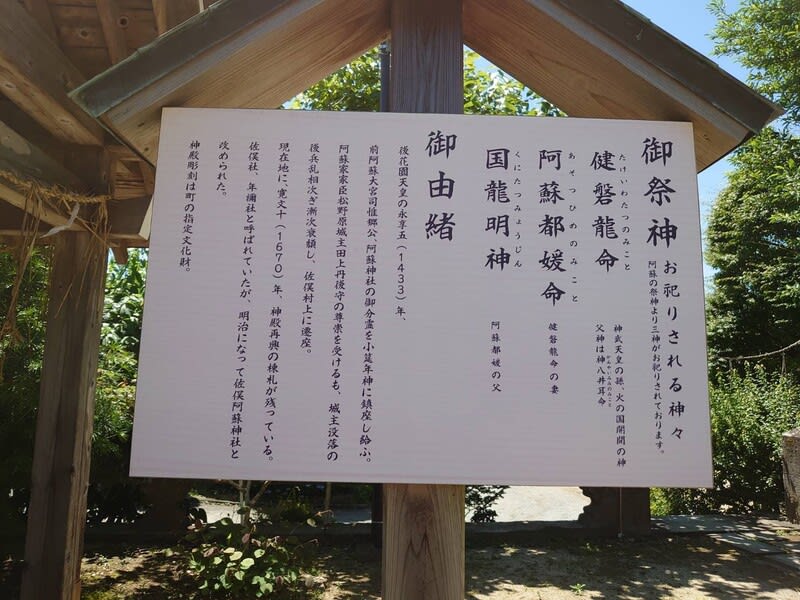 御祭神 お祀りされる神々
阿蘇の祭神より三神がお祀りされております。
たけいわたつのみこと
健磐龍命
神武天皇の孫、火の国開闢の神
父神は神八井耳命
かむやいみみのみこと
あそつひめのみこと
阿蘇都媛命
健磐龍命の妻
くにたつみょうじん
国龍明神
阿蘇都媛の父
御由緒
後花園天皇の永享五(1433)年、
前阿蘇大宮司惟郷公、阿蘇神社の御分霊を小筵年神に鎮座し給ふ。
阿蘇家家臣松野原城主田上丹後守の尊崇を受けるも、城主没落の
後兵乱相次ぎ漸次衰頽し、佐俣村上に遷座。
現在地に、寛文十(1670)年、神殿再興の棟札が残っている。
佐俣社、年禰社と呼ばれていたが、明治になって佐俣阿蘇神社と
改められた。
神殿彫刻は町の指定文化財。